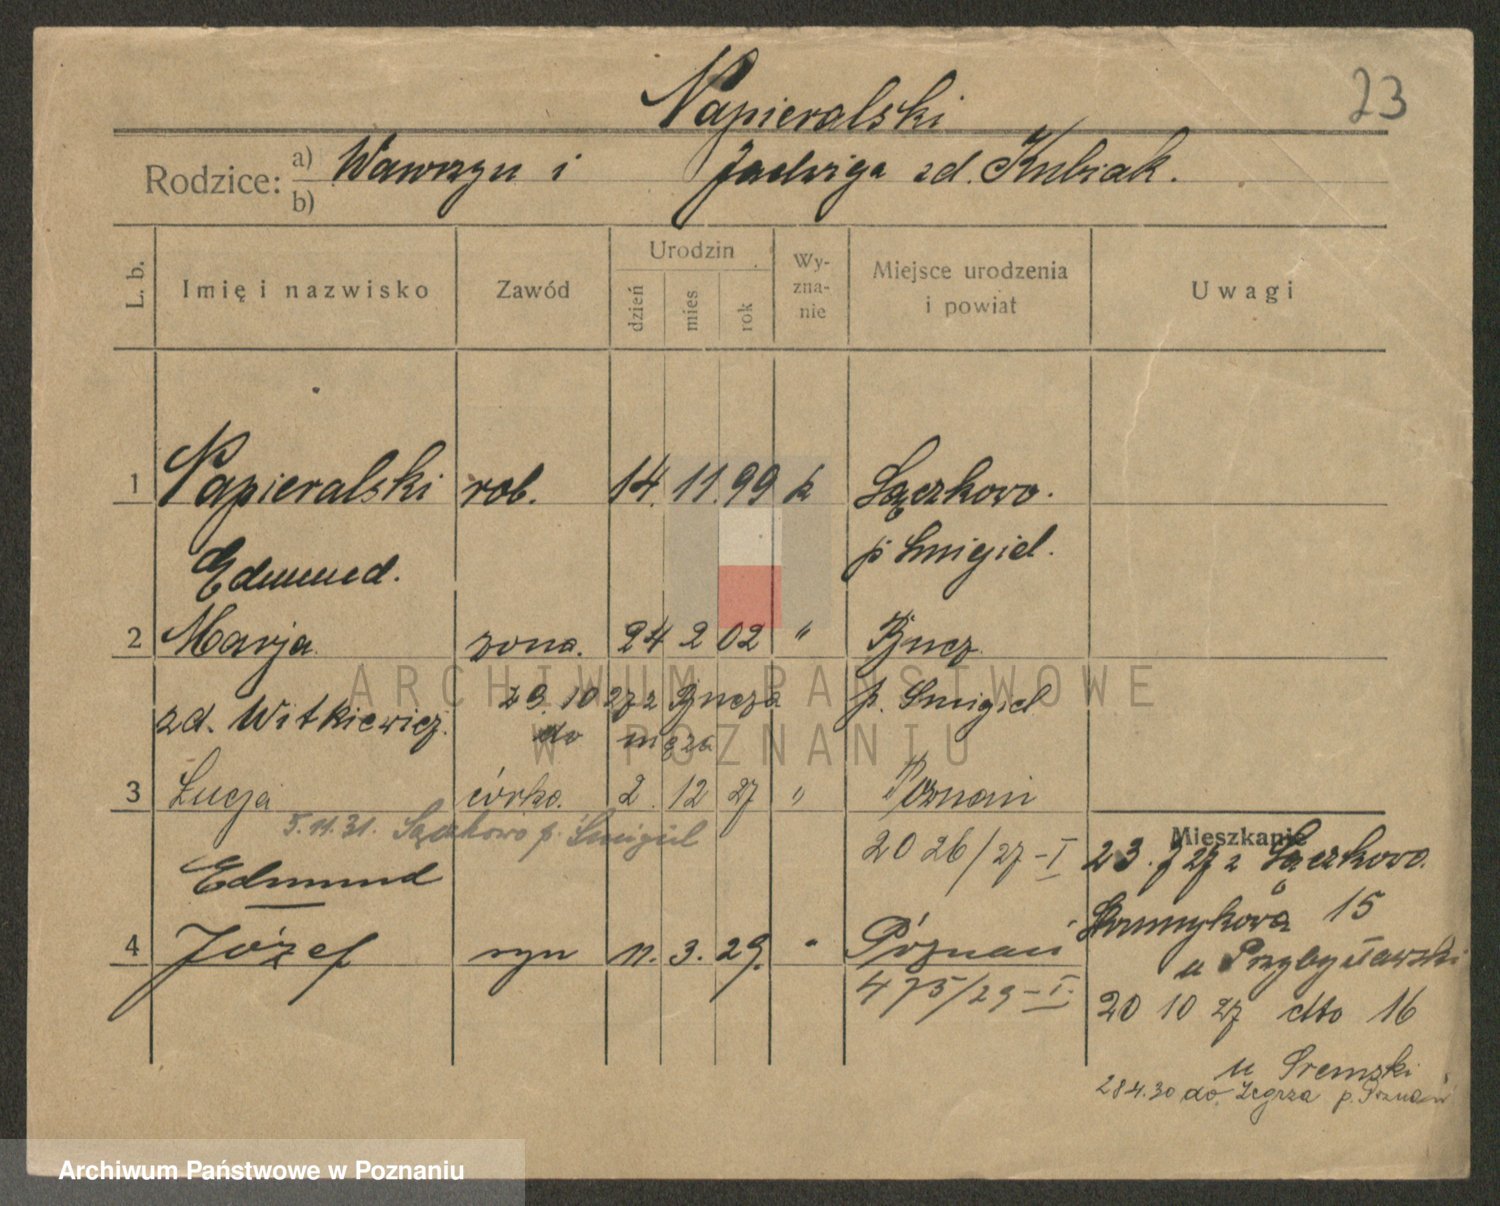 Napieralski
23
Rodzice: a) Wawrzyn i Jadwiga zd. Kubiak.
b)
L. b. Imię i nazwisko Zawód Urodzin dzień mies rok Wy-zna-nie Miejsce urodzenia i powiat Uwagi
1 Napieralski rob. 14. 11. 99 k Sączkowo.
Edmund. p Śmigiel.
2 Marja żona. 24 2 02 " Bucz
zd. Witkiewicz. 29. 10 27 z Bucza p. Śmigiel
do męża
3 Łucja córka. 2. 12 27 " Poznań
5.11.31. Sączkowo p. Śmigiel 2026/27-I
Edmund
4 Józef syn 11. 3. 29. " Poznań
475/29-I.
Mieszkanie
23. 7 27 z Sączkowo.
15
u Przybylawski
20 10 27 dto 16
u Sremski
28.4.30 do Zegrza p. Poznań
ARCHIWUM PAŃSTWOWE
W POZNANIU
Archiwum Państwowe w Poznaniu